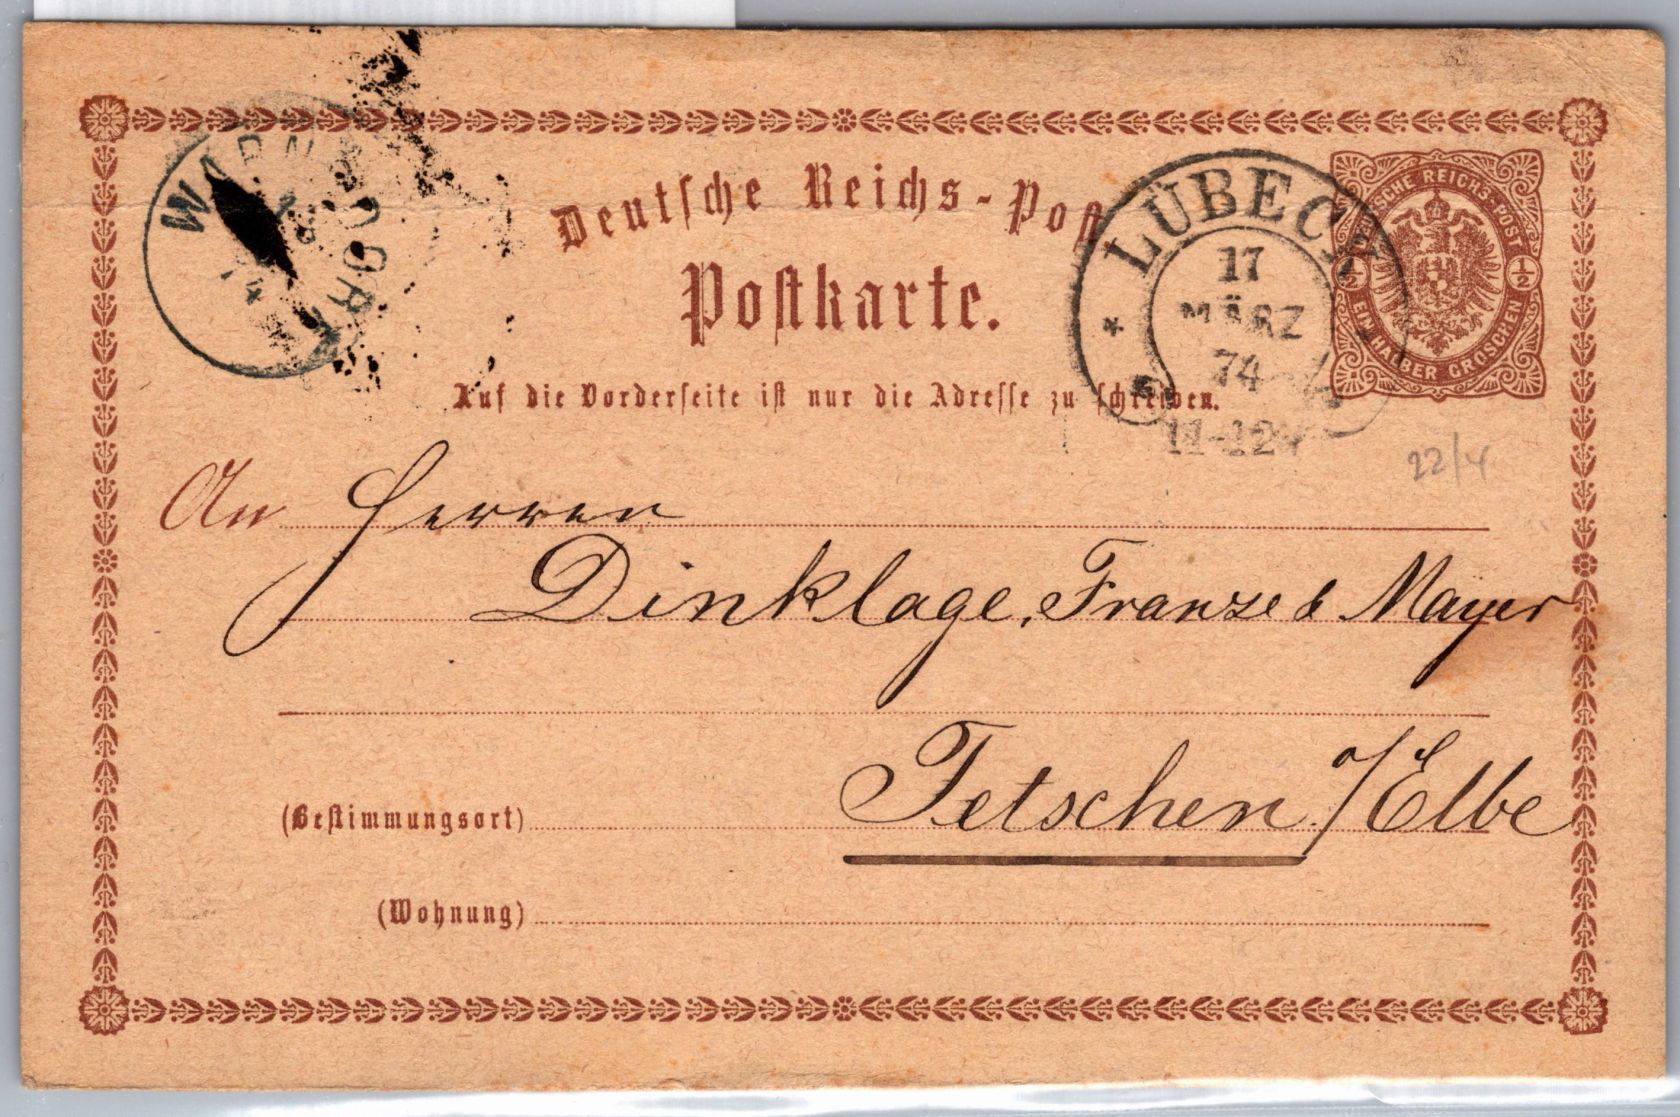 Deutsche Reichs-Post.
Postkarte.
Auf die Vorderseite ist nur die Adresse zu schreiben.
WARNSDORF
LÜBECK
17
MÄRZ
74
11-12V
DEUTSCHE REICHS-POST
½ ½
EIN HALBER GROSCHEN
22/4
An Herren
Dinklage, Franze & Mayer
(Bestimmungsort) Tetschen a/Elbe
(Wohnung)